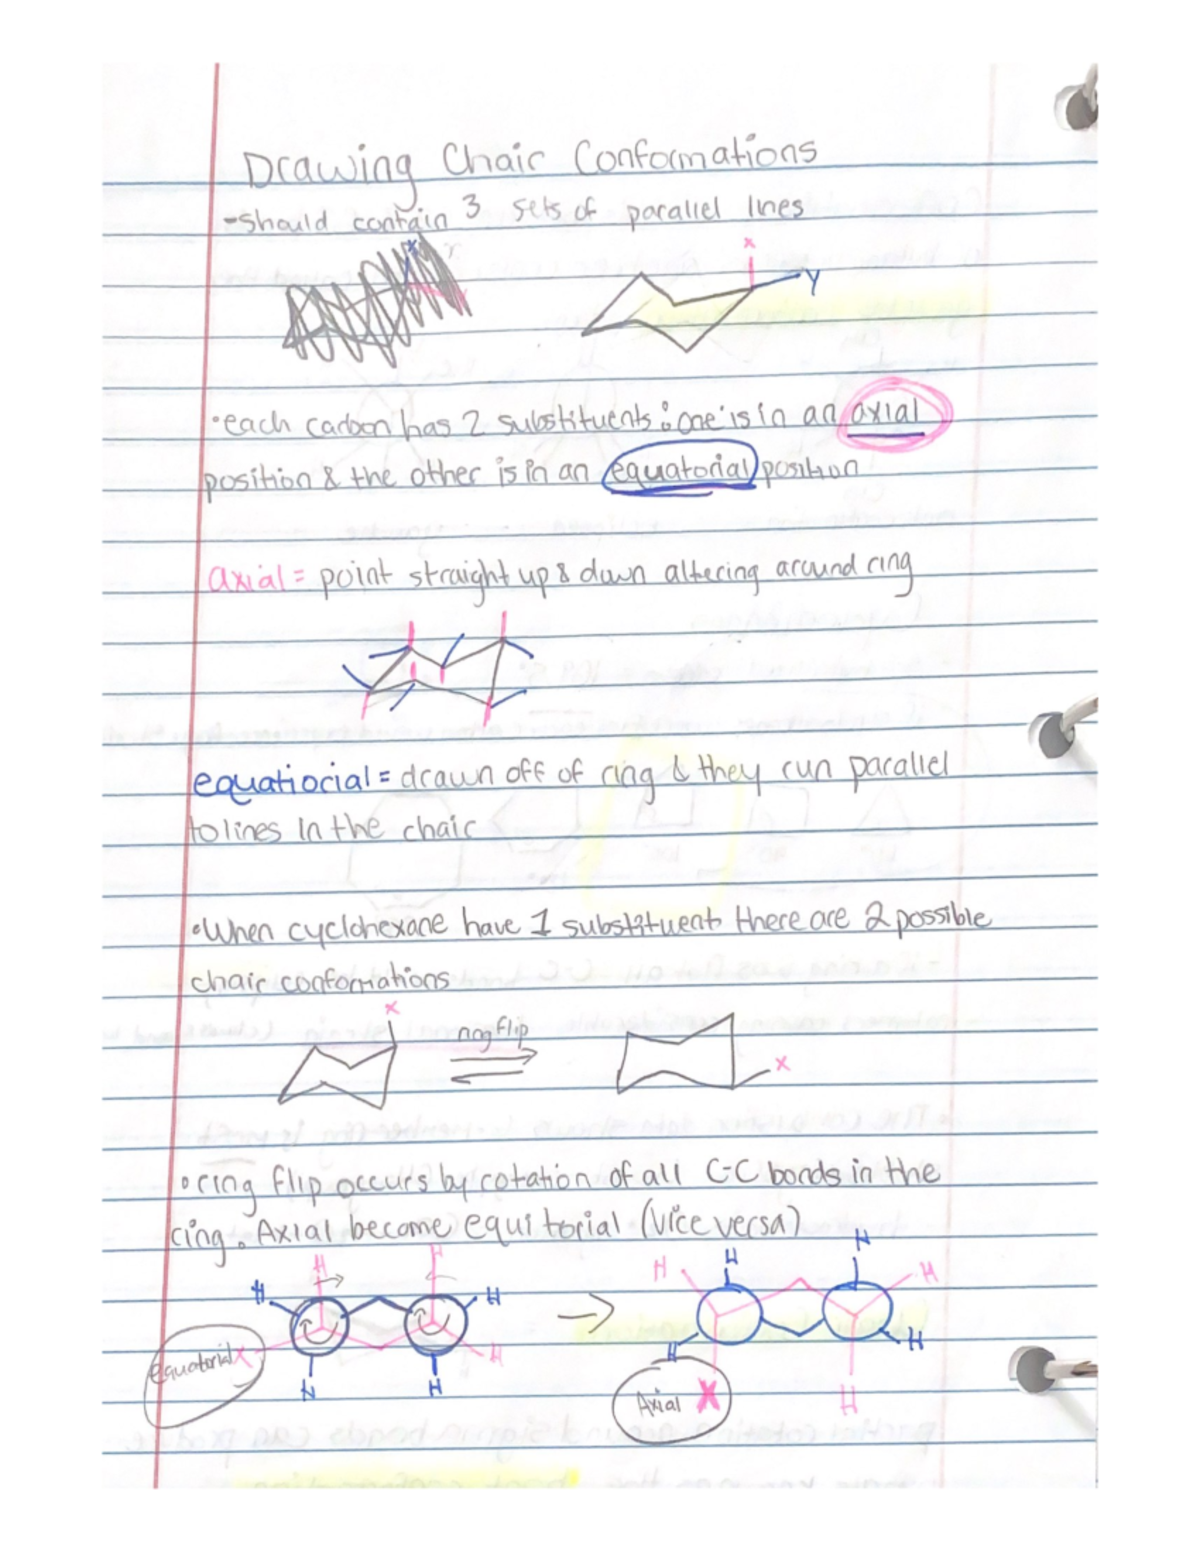 Drawing Chair Conformations
-should contain 3 sets of parallel lines
x
y
•each carbon has 2 substituents: one is in an axial
position & the other is in an equatorial position
axial = point straight up & down altering around ring
equatiorial = drawn off of ring & they run parallel
to lines in the chair
•When cyclohexane have 1 substituent there are 2 possible
chair conformations
x
ring flip
x
•ring flip occurs by rotation of all C-C bonds in the
ring. Axial become equitorial (vice versa)
H H H H
H H H H
equatorial x H
H H
H H
Axial X H